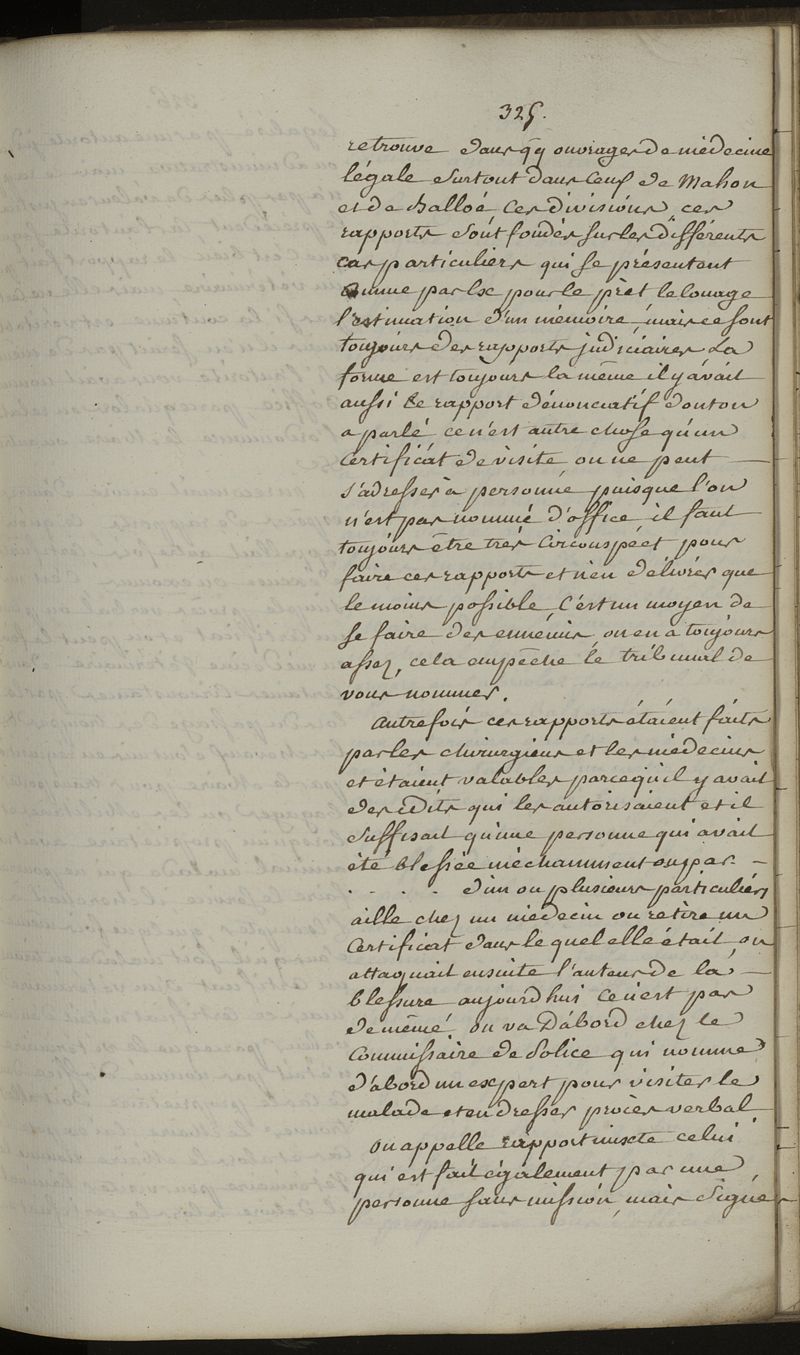 325.
retrouve dans qq ouvrages de médecine
légale surtout dans ceux de Mahon
et de Balloé ces divisions, ces
rapports sont fondés sur les différents
cas particuliers qui se présentent
comme par Ex pour le prêt le louage
l'estimation d'un mémoire, mais ce sont
toujours des rapports judiciaires La
forme est toujours la même il y avait
aussi le rapport dénonciatif dont on
a parlé ce n'est autre chose qu'un
Certificat de visite on ne peut —
s'adresser à personne puisque l'on
n'est pas nommé d'office il faut
toujours être très Circonspect pour
faire ces rapports et n'en délivrer que
le moins possible, C'est un moyen de
se faire des ennemis, on en a toujours
assez, cela empêche le tribunal de
vous nommer.
Autrefois ces rapports étaient faits
par les chirurgiens et les médecins
et étaient valables parcequ'il y avait
des édits qui les autorisaient et il
suffisait qu'une personne qui avait
été blessée méchamment ou par —
. - . - . d'un ou plusieurs particuliers
aille chez un médecin on retire un
Certificat dans le quel elle était, on
attaquait ensuite l'auteur de la —
blessure aujourd'hui Ce n'est pas
de même on va D'abord chez le
Commissaire de Police qui nomme
d'abord un expert pour visiter le
malade et en dresser procès verbal
On appelle rapport mixte celui
qui est fait également par une
personne sans mission, mais signé